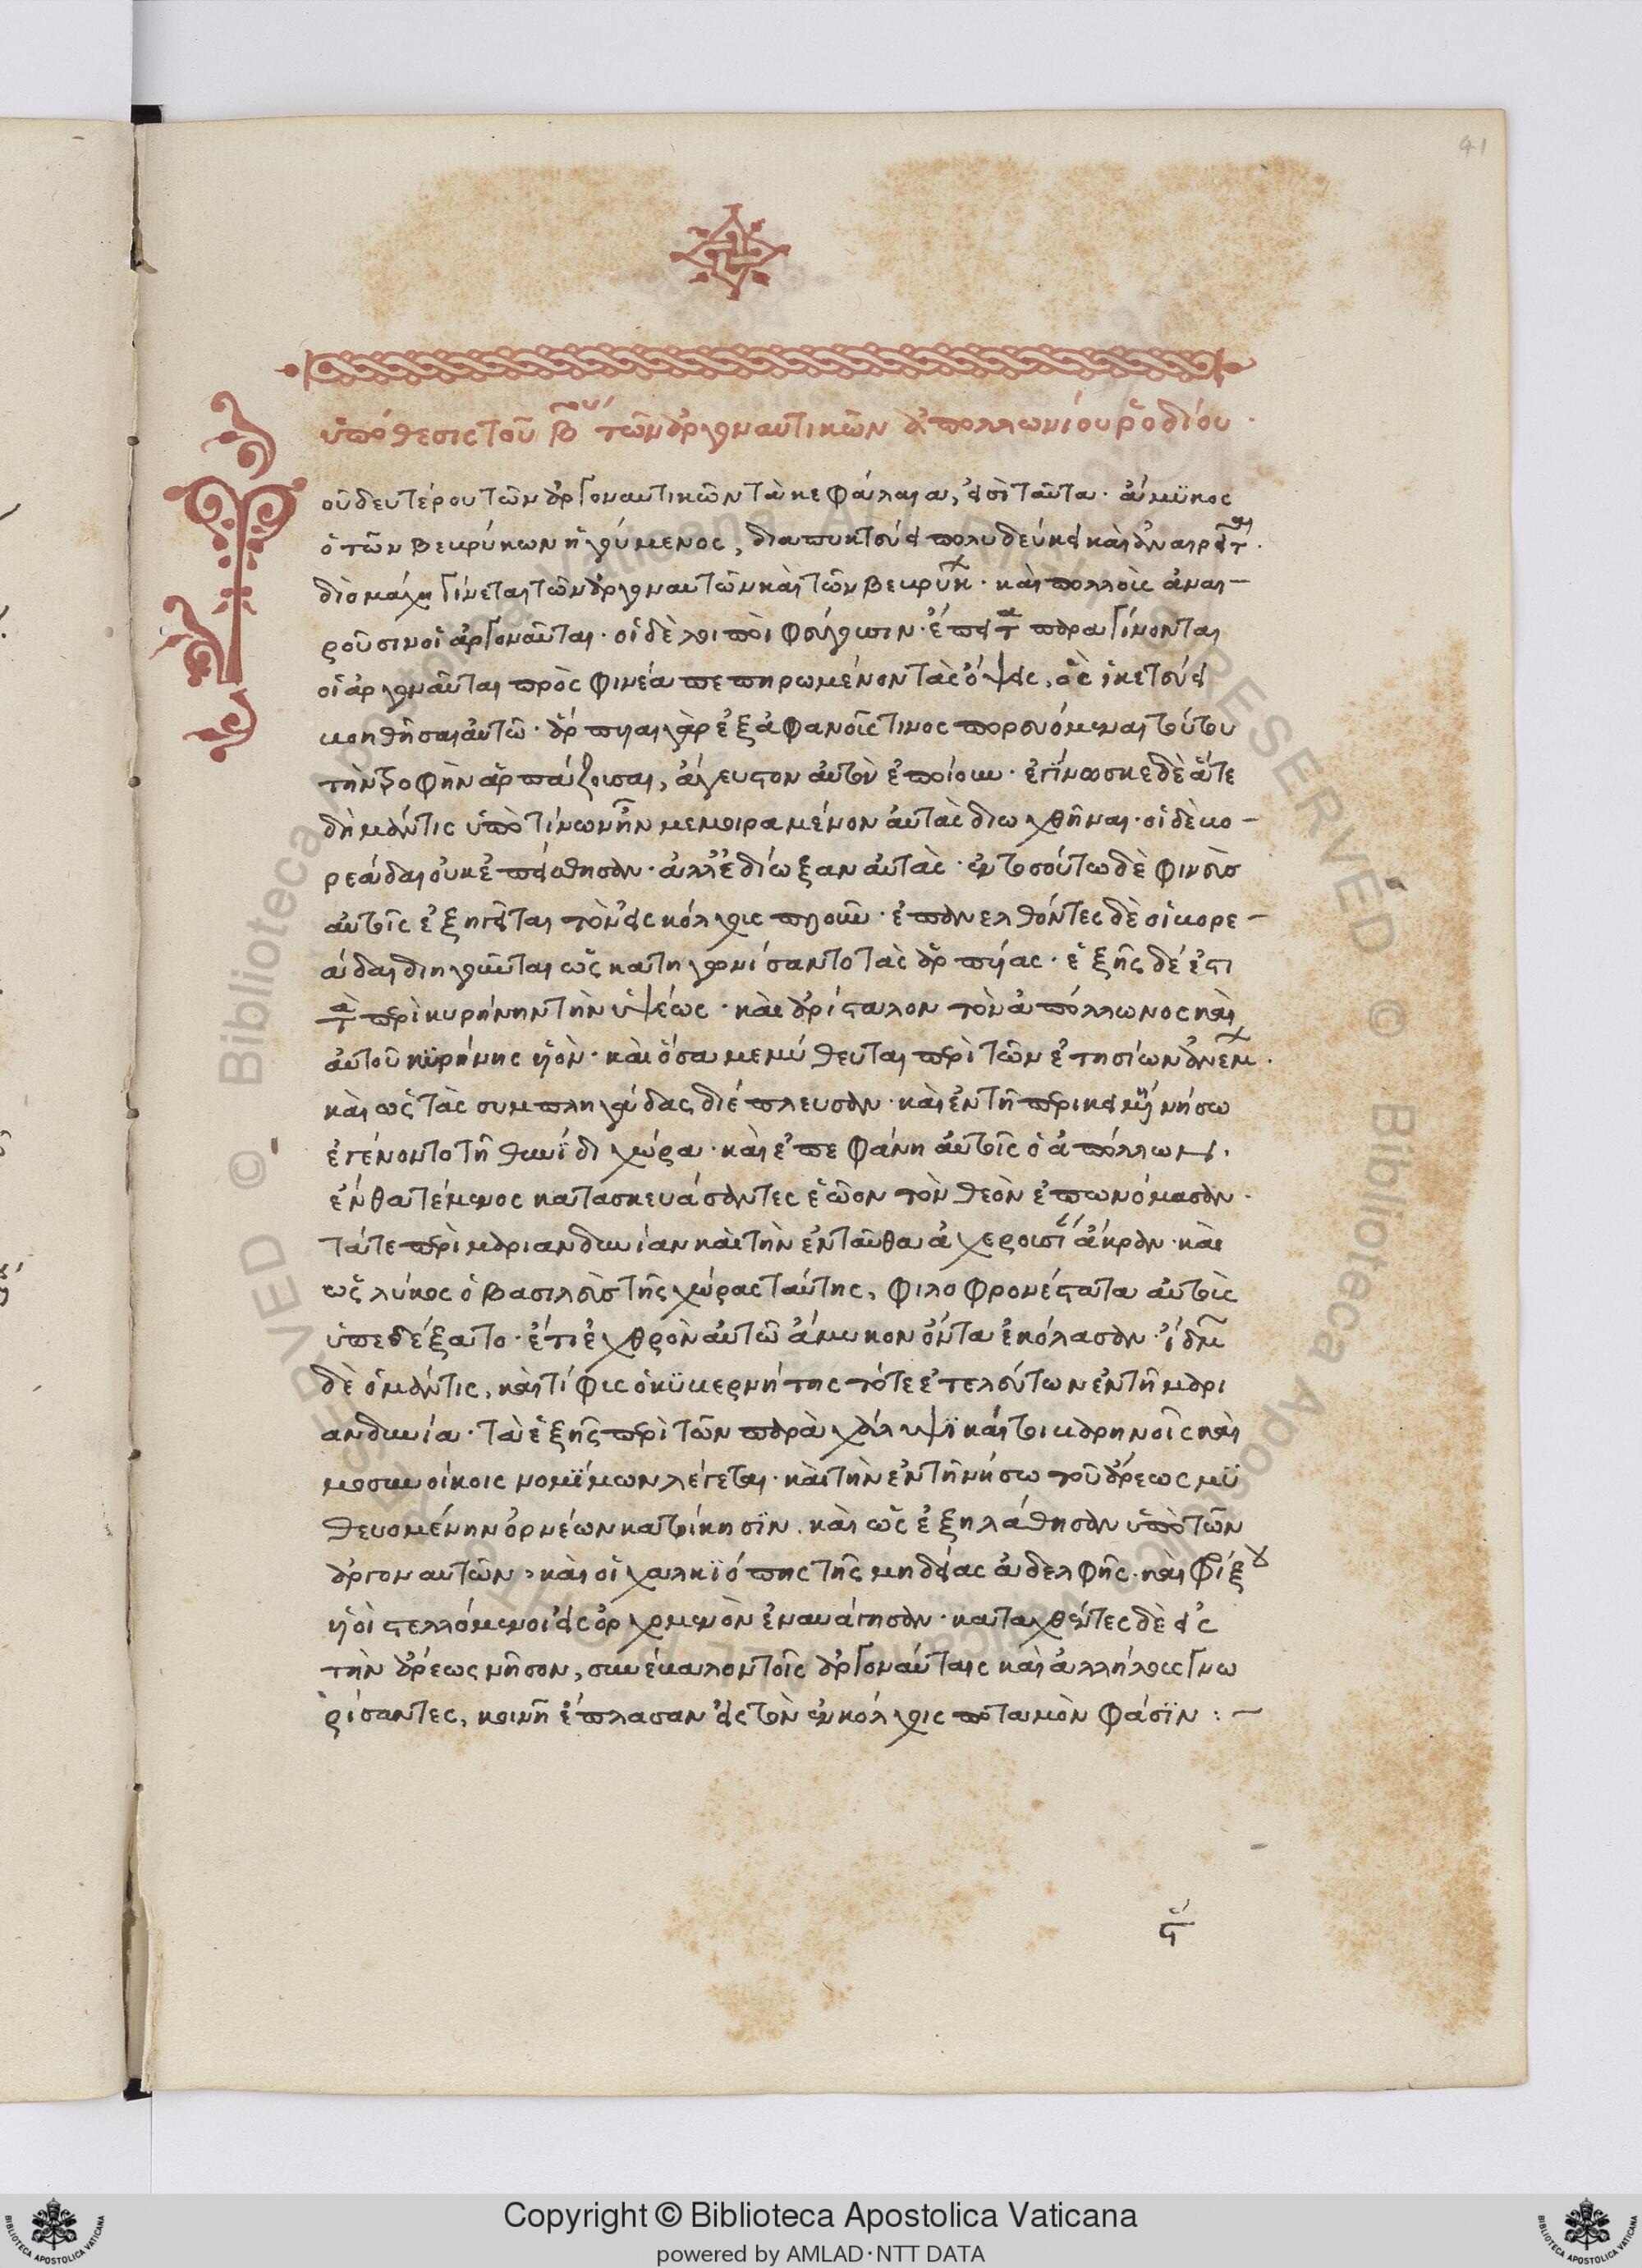 41
ὑπόθεσις τοῦ β̅ου τῶν ἀργοναυτικῶν ἀπολλωνίου ῥοδίου ·
Τ
οῦ δευτέρου τῶν ἀργοναυτικῶν τὰ κεφάλαια, εἰσὶ ταῦτα · ἄμυκος
ὁ τῶν βεκρύκων ἡγούμενος, διαπυκτεύει πολυδεύκει καὶ ἀναιρεῖται.
διὸ μάχη γίνεται τῶν ἀργοναυτῶν καὶ τῶν βεκρύκ · καὶ πολλοὺς ἀναι-
ροῦσιν οἱ ἀργοναῦται · οἱ δὲ λοιποὶ φεύγωσιν · ἔπειτα παραγίνονται
οἱ ἀργοναῦται πρὸς φινέα πεπηρωμένον τὰς ὄψεις, οὓς ἱκετεύει
βοηθῆσαι αὐτῶ · ἅρπυιαι γὰρ ἐξ ἀφανοῖς τινος πορευόμεναι τούτου
τὴν τροφὴν ἁρπάζουσαι, ἄγευστον αὐτὸν ἐποίουν · ἐγίνωσκε δὲ ἅτε
δὴ μάντις ὑπὸ τίνων ἦν μεμοιραμένον αὐτὰς διωχθῆναι · οἱ δὲ βο-
ρεάδαι οὐκ ἐπείσθησαν · ἀλλ' ἐδίωξαν αὐτὰς · ἐν τοσούτω δὲ φινεὺς
αὐτοῖς ἐξηγεῖται τὸν εἰς κόλχοις πλοῦν · ἐπανελθόντες δὲ οἱ βορε-
άδαι διηγοῦνται ὡς κατηγωνίσαντο τὰς ἁρπυίας · ἑξῆς δέ ἐστι
τὰ περὶ κυρήνην τὴν ὑψέως · καὶ ἀρίσταλον τὸν ἀπόλλωνος καὶ
αὐτοῦ κυρήνης υἱὸν · καὶ ὅσα μεμύθευται περὶ τῶν ἐτησίων ἀνέμ .
καὶ ὡς τὰς συμπληγάδας διέπλευσαν · καὶ ἐν τῆ περικειμένη νήσω
ἐγένοντο τῆ θυνίδι χώρα · καὶ ἐπεφάνη αὐτοῖς ὁ ἀπόλλων.
ἔνθα τέμενος κατασκευάσαντες ἑῶον τὸν θεὸν ἐπωνόμασαν ·
τάτε περὶ μαριανδυνίαν καὶ τὴν ἐνταῦθα ἀχερουσί ἄκραν · καὶ
ὡς λύκος ὁ βασιλεὺς τῆς χώρας ταύτης, φιλοφρονέστατα αὐτοὺς
ὑπεδέξατο · ἔτι ἐχθρὸν αὐτῶ ἄμυκον ὄντα ἐκόλασαν · ἴδμ
δὲ ὁ μάντις, καὶ τίφις ὁ κυβερνήτης τότε ἐτελεύτων ἐν τῆ μαρι
ανδυνία · τὰ ἑξῆς περὶ τῶν παρὰ χάλυψι καὶ τοι βαρηνοῖς καὶ
μοσυνοίκοις νομίμων λέγεται · καὶ τὴν ἐν τῆ νήσω τοῦ ἄρεως μυ
θευομένην ὀρνέων κατοίκησιν . καὶ ὡς ἐξηλάθησαν ὑπὸ τῶν
ἀργοναυτῶν · καὶ οἱ χαλκιόπης τῆς μηδείας ἀδελφῆς · καὶ φρίξου
υἱοὶ στελλόμενοι εἰς ὀρχομενὸν ἐναυάγησαν · καταχθέντες δὲ εἰς
τὴν ἄρεως νῆσον, συνέβαλον τοῖς ἀργοναύταις καὶ ἀλλήλους γνω
ρίσαντες, κοινῆ ἔπλασαν εἰς τὸν ἐν κόλχοις ποταμὸν φάσιν : -
Copyright © Biblioteca Apostolica Vaticana
powered by AMLAD·NTT DATA